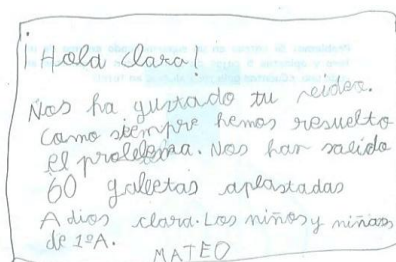 ¡Hola clara!
Nos ha gustado tu
Como siempre hemos resuelto
el problema. Nos han salido
60 galletas aplastadas
Adios clara. Los niños y niñas
de 1ºA.
MATEO